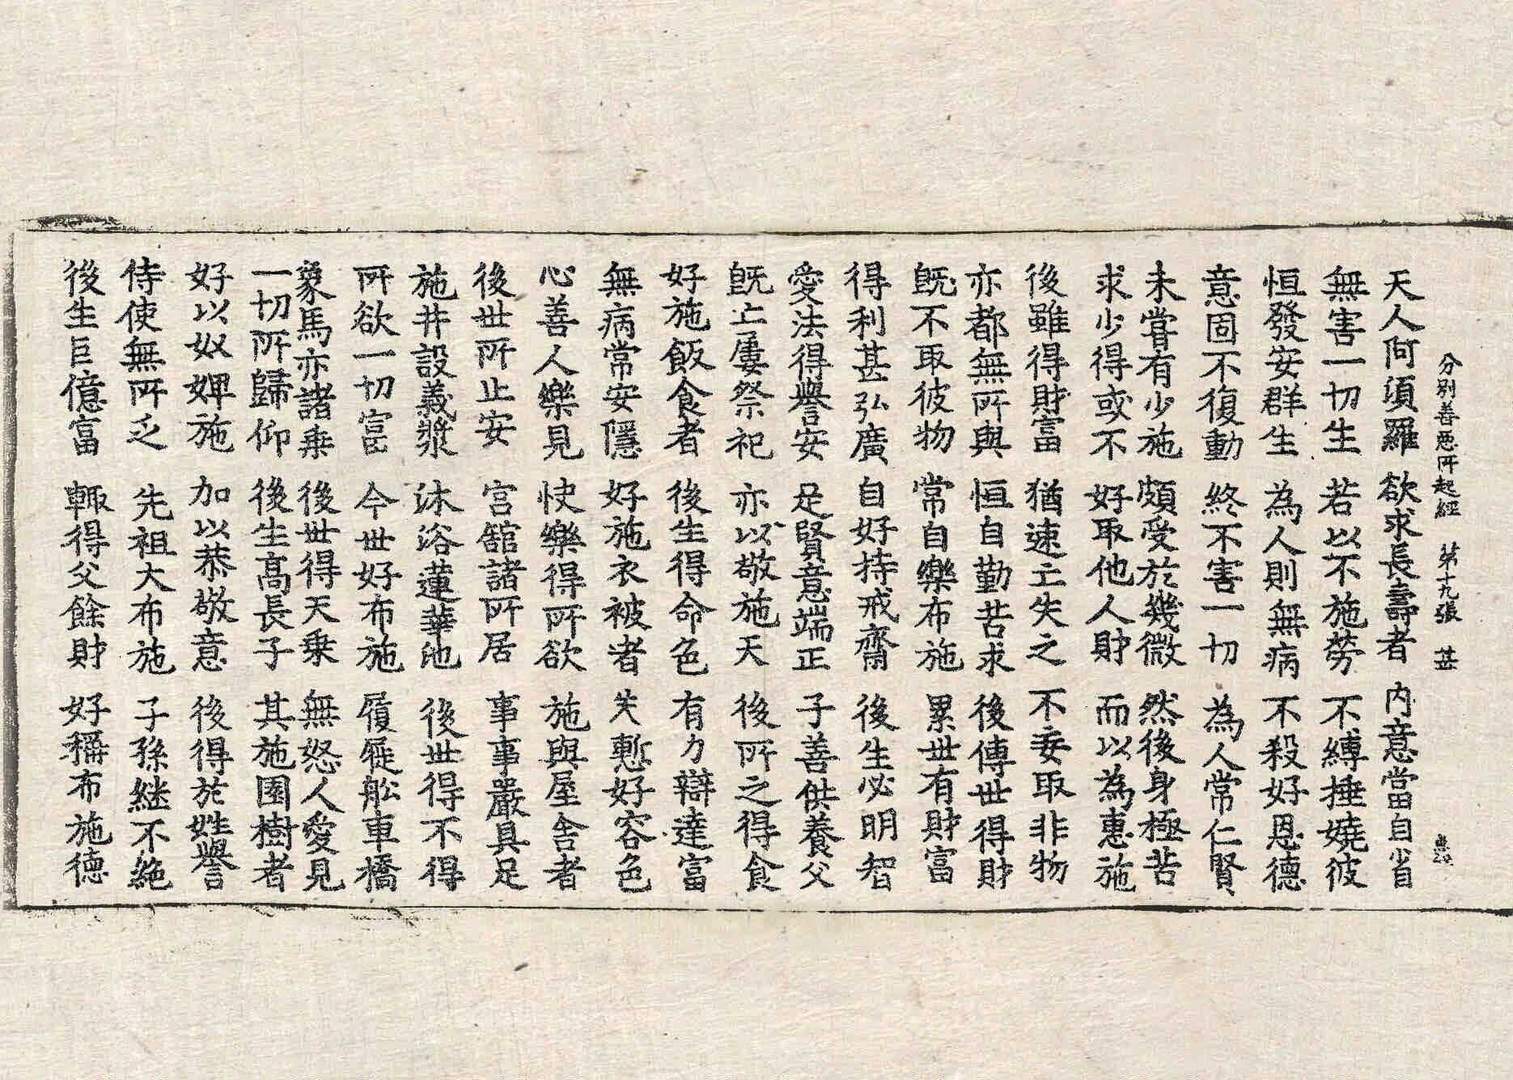 分别善惡所起經 第十九張 甚
天人阿須羅 欲求長壽者 內意當自省
無害一切生 若以不施勞 不縛捶嬈彼
恒發安群生 為人則無病 不殺好恩德
意固不復動 終不害一切 為人常仁賢
未嘗有少施 頗受於幾微 然後身極苦
求少得或不 好取他人財 而以為惠施
後雖得財富 猶速亡失之 不妄取非物
亦都無所與 恒自勤苦求 後傳世得財
既不取彼物 常自樂布施 累世有財富
得利甚弘廣 自好持戒齋 後生必明智
愛法得譽安 足賢意端正 子善供養父
既亡屢祭祀 亦以敬施天 後所之得食
好施飯食者 後生得命色 有力辯達富
無病常安隱 好施衣被者 慙好容色
心善人樂見 快樂得所欲 施與屋舍者
後世所止安 宮舘諸所居 事事嚴具足
施井設義漿 沐浴蓮華池 後世得不得
所欲一切富 今世好布施 履屣舩車橋
象馬亦諸乗 後世得天乗 無怒人愛見
一切所歸仰 後生高長子 其施園樹者
好以奴婢施 加以恭敬意 後得於姓譽
侍使無所乏 先祖大布施 子孫継不絶
後生巨億富 輙得父餘財 好稱布施德